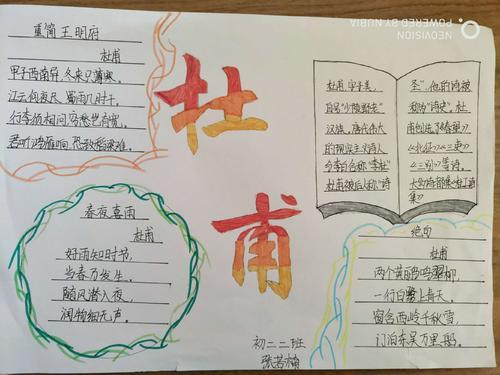 重简王明府
杜甫
甲子西南异，冬来只薄寒。
江云何夜尽，蜀雨几时干。
行李须相问，穷愁岂有宽。
君听鸿雁响，恐致稻粱难。
春夜喜雨
杜甫
好雨知时节，
当春乃发生。
随风潜入夜，
润物细无声。
杜甫
杜甫，字子美，
自号“少陵野老”
汉族，唐代伟大
的现实主义诗人
与李白合称“李杜”
杜甫被后人称“诗
圣”，他的诗被
称为“诗史”。杜
甫创造了《春望》
《北征》《三吏》
《三别》等诗。
集》
绝句
杜甫
两个黄鹂鸣翠柳，
一行白鹭上青天。
窗含西岭千秋雪，
门泊东吴万里船。
初二二班
张若楠
NEOVISION
POWERED BY NUBIA